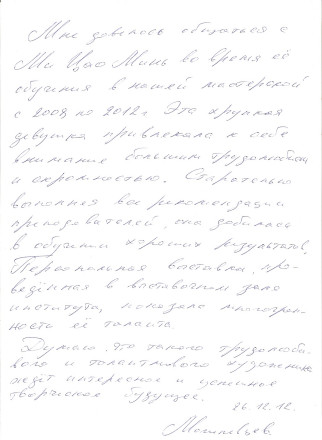 Мне довелось общаться с
Ми Цао Минь во время её
обучения в нашей мастерской
с 2008 по 2012 г. Эта хрупкая
девушка привлекала к себе
внимание большим трудолюбием
и скромностью. Старательно
выполняя все рекомендации
преподавателей, она добилась
в обучении хороших результатов.
Персональная выставка, про-
ведённая в выставочном зале
института, показала многогран-
ность её таланта.
Думаю, что такого трудолюби-
вого и талантливого художника
ждёт интересное и успешное
творческое будущее.
26.12.12.